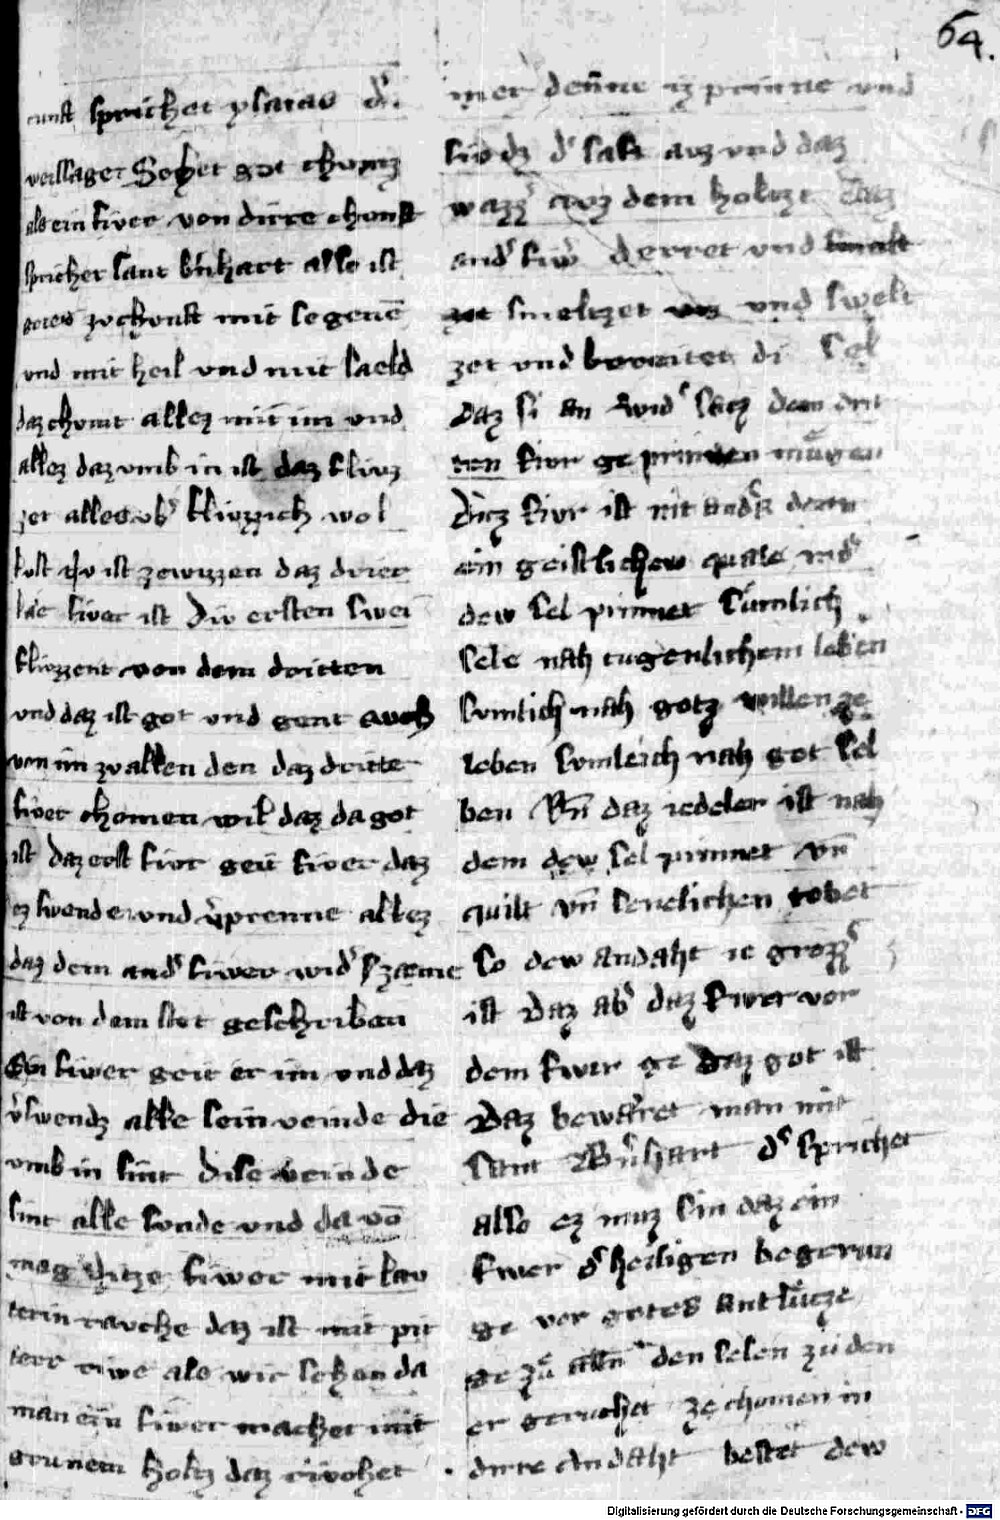 64.
cunft sprichet ysaias d'.
weissager Sehet got chumz
als ein fiwer von dirre chonft
sprichet sant b'nhart also ist
gotes zvchonft mit segenē
vnd mit heil vnd mit saeld
daz chvmt allez mit im vnd
allez daz vmb in ist daz fliuz
zet alles vb' flivzzich wol
ist ze wizzen daz drier
lae fiver ist Div ersten zwei
flivzzent von dem dritten
vnd daz ist got vnd gent avch
von im zv allen den daz dritte
fiver chomen wil daz da got
ist daz erst fivr geit fiver daz
ez swende vnd v'prenne allez
daz dem and' fiwer wid' zaeme
ist von dem stet geschriben
Ein fiwer geit er im vnd daz
v'swendz alle sein veinde die
vmb in sint dise veinde
sint alle svnde vnd da vō
mag ditze fiwer mit lav
terin ravche daz ist mit pit
terr riwe als wir sehen da
man ein fiwer machet mit
grunem holtz daz rivchet
mer denne iz prinne vnd
sivdz d' saft auz vnd daz
wazz' auz dem holtze Daz
and' fiw' derret vnd
smeltzet vnd swelt
zet vnd bereitet di sel
daz si an wid' satz dem drit
ten fivr ge prinnen mügen
Ditz fivr ist nit and's denn
ein geistlichew quale
dew sel prinnet sümlich
sele nah tugenlichem leben
svmlich nah gotz willen ze
leben svmleich nah got sel
ben Vn̄ daz iedeler ist nah
dem dew sel prinnet vn̄
quilt vn̄ senelichen tobet
so dew andaht ie grozz'
ist Daz ab' daz fiwer vor
dem fiwer ge daz got ist
Daz bewäret man mit
sant B'nhart d' sprichet
also ez muz sin daz ein
fiwer d' heiligen begerun
ge vor gotes antlütze
ge zů allen den selen zů den
er geruchet ze chomen in
dirre andaht bestet dew
Digitalisierung gefördert durch die Deutsche Forschungsgemeinschaft - DFG